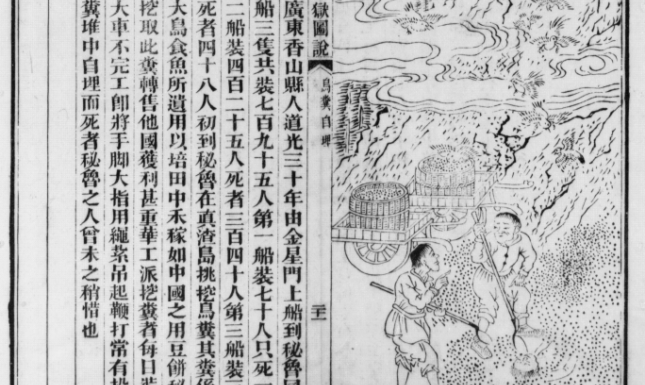 獄圖說
鳥糞自埋
廣東香山縣人道光三十年由金星門上船到秘魯國
船三隻共裝七百九十五人第一船裝七十人只死一
二船裝四百二十五人死者三百四十人第三船裝
死者四十八人初到秘魯在直渣島挑挖鳥糞其糞係
大鳥食魚所遺用以培田中禾稼如中國之用豆餅秘
挖取此糞轉售他國獲利甚重華工派挖糞者每日裝
大車不完工卽將手脚大指用繩紮吊起鞭打常有投
糞堆中自埋而死者秘魯之人曾未之稍惜也